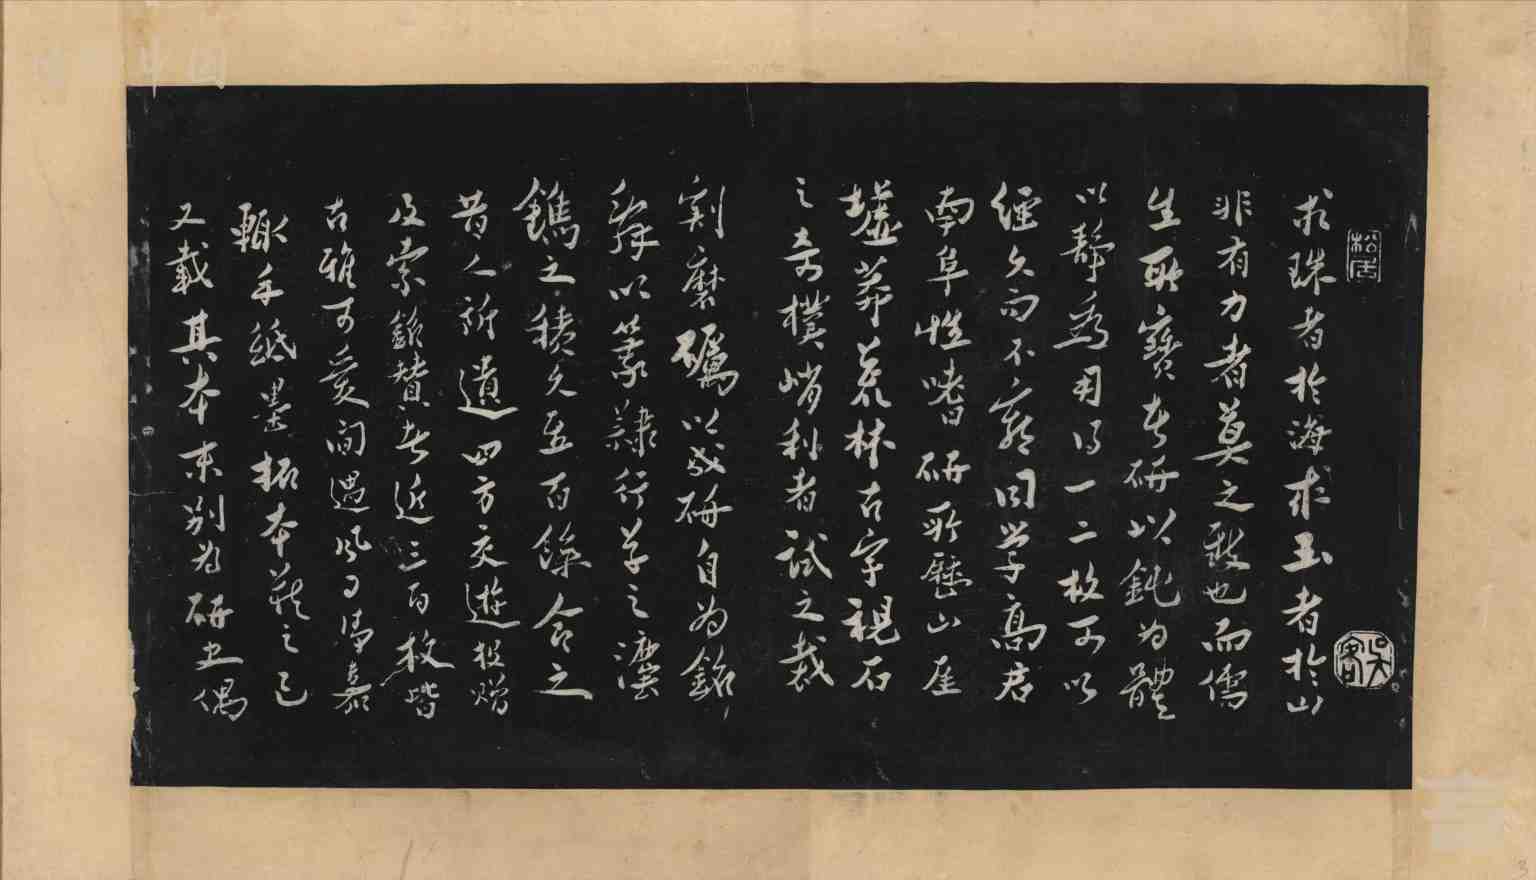 求珠者於海求玉者於山
非有力者莫之致也而儒
生取寶者研以鈍為體
以靜為用得一二枚可以
經久而不窮同學高君
南阜性嗜研所歷山崖
墟莽荒林古字視石
之奇樸峭利者試之裁
割磨礪以成研自為銘
辭以篆隸行草之灋
鐫之積久盈百餘合之
昔人所遺四方交遊投贈
及索銘贊者近三百枚皆
古雅可愛間遇風日清嘉
輒手紙墨拓本藏之已
又載其本末別為研史偶
松居